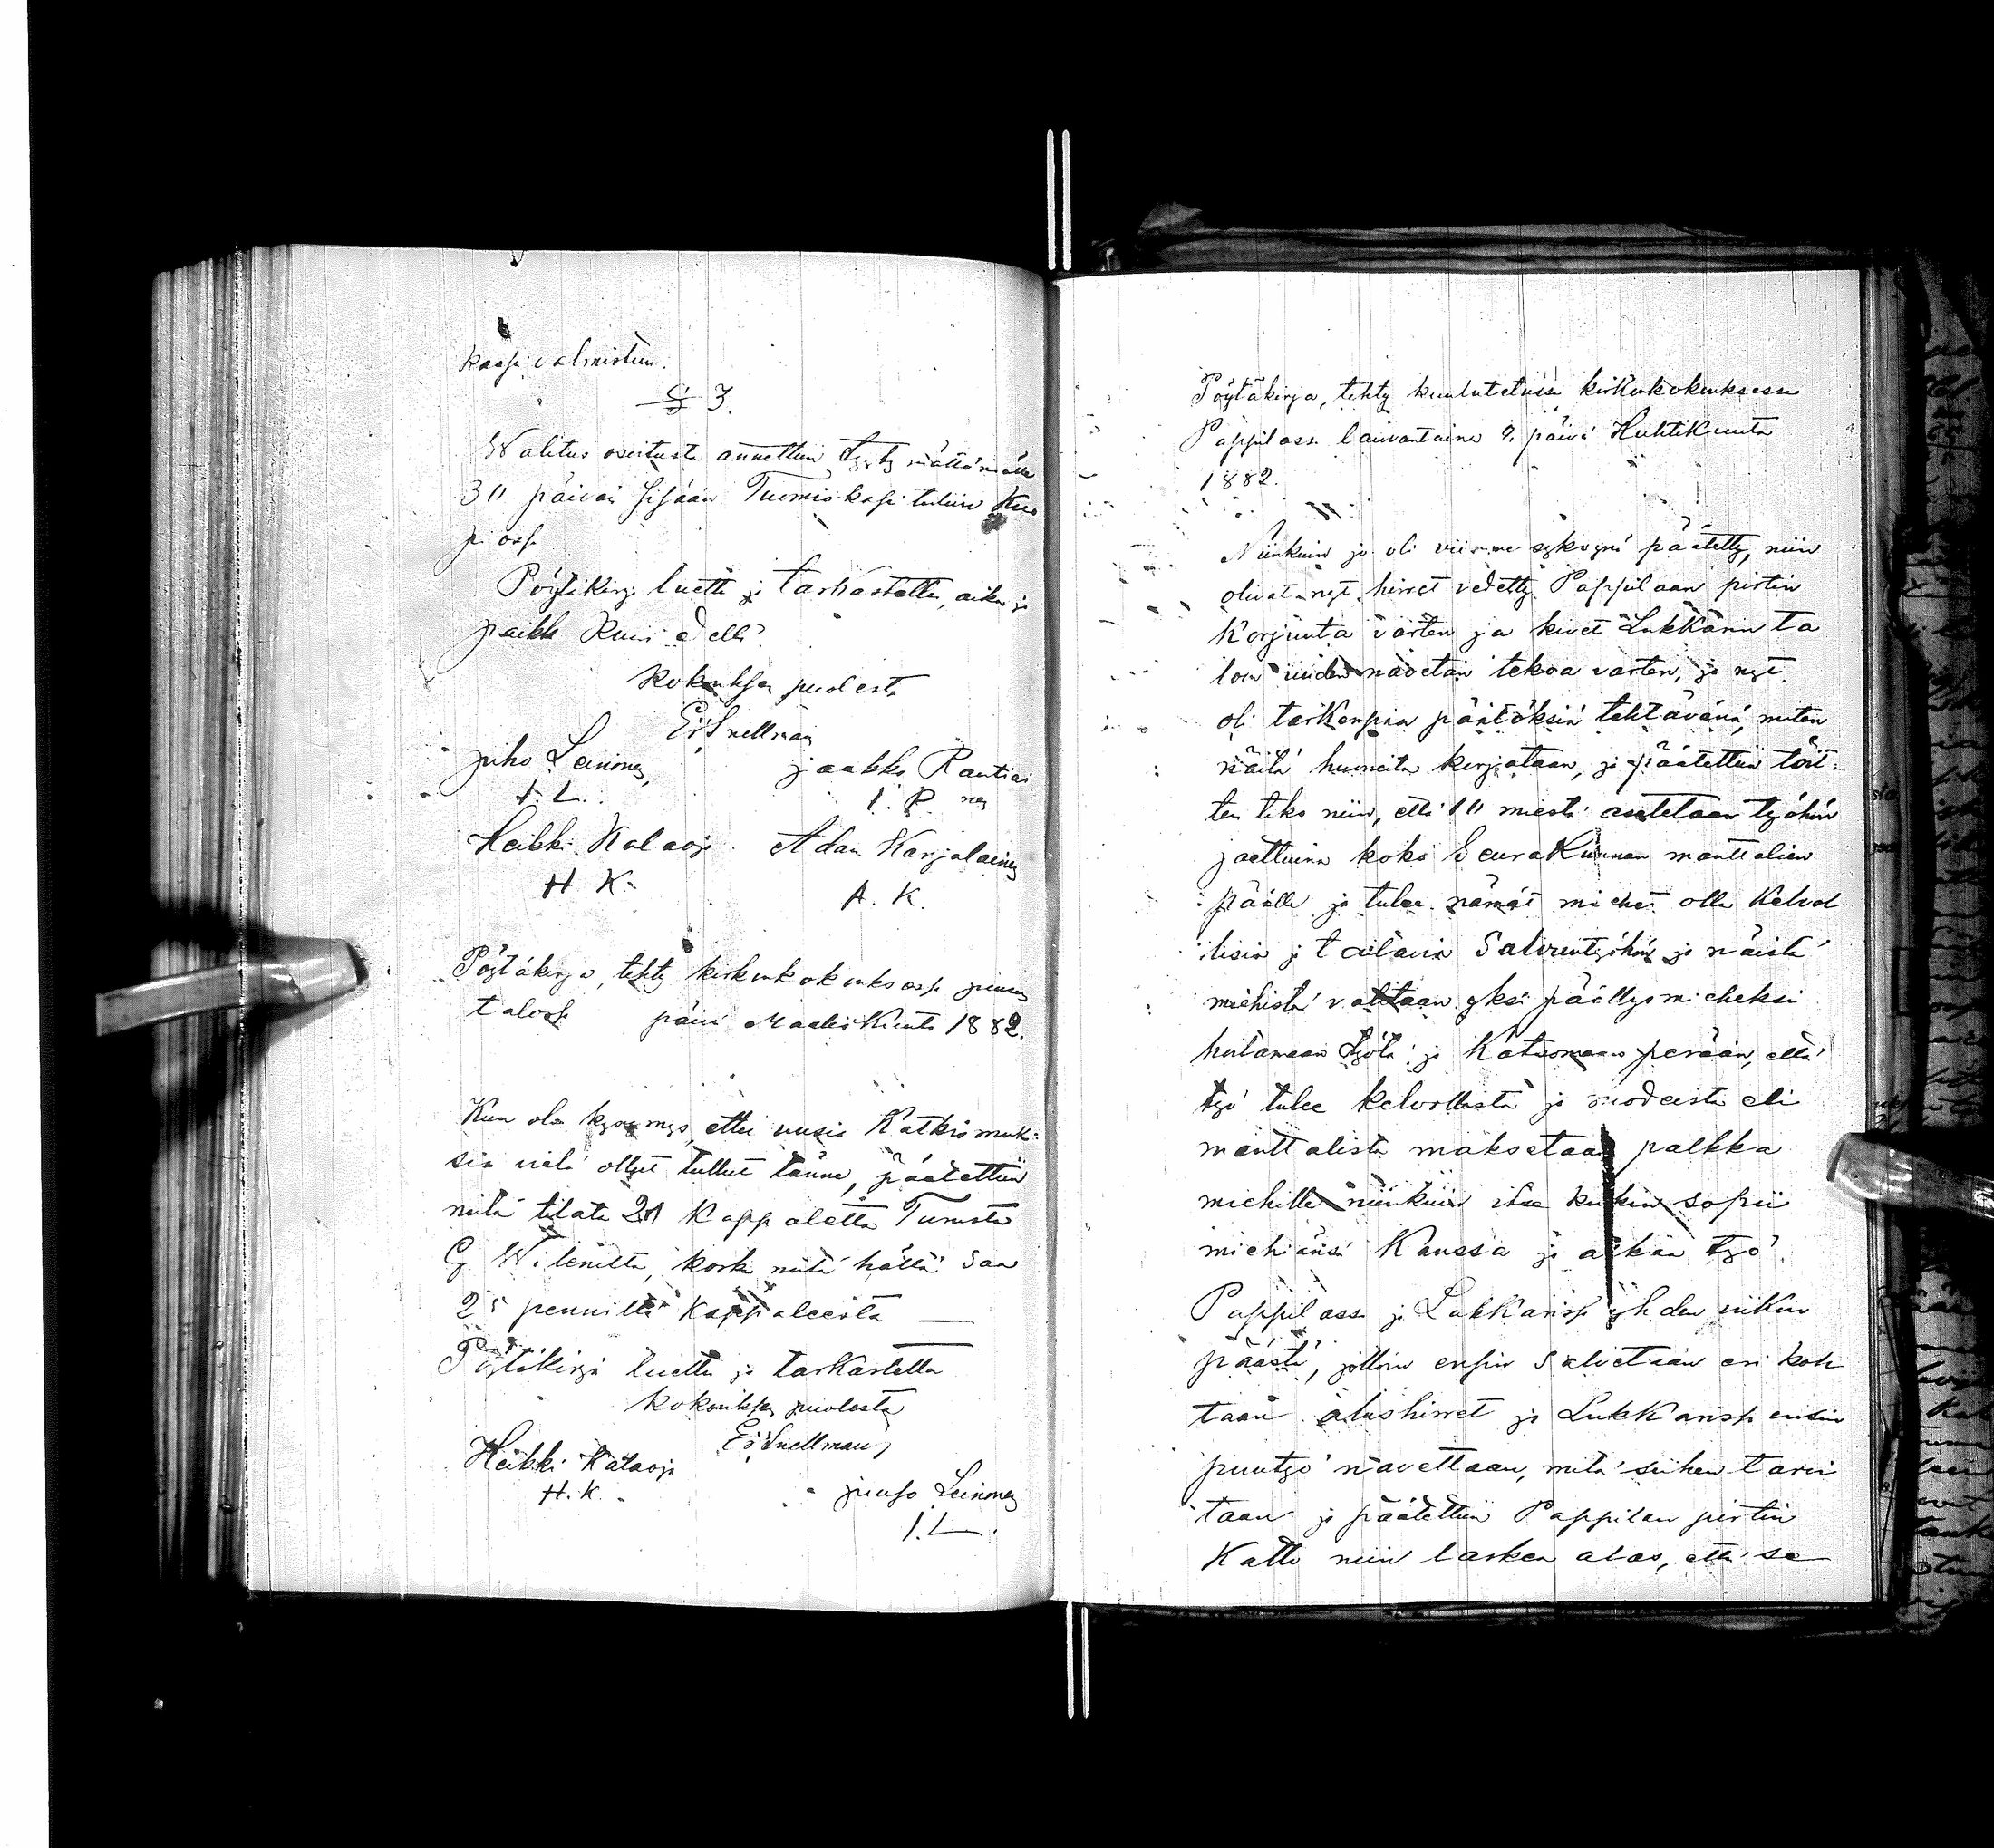 kassa valmistuu.
§ 3.
Walitus osoitusta annettiin tyytymättömälle
30 päivän sisään Tuomiokapituliin Kuo
piossa
Pöytäkirja luettu ja tarkastettu, aika ja
paikka kuin edellä
Kokouksen puolesta
E Snellman
Juho Leinonen, Jaakko Rautiai
J. L. J. R. nen
Heikki Kataoja Adam Karjalainen
H. K. A. K.
Pöytäkirja, tehty kirkonkokouksessa
talossa päivä Maaliskuuta 1882.
Kun oli kysymys, ettei uusia Katkismuk-
sia vielä ollut tullut tänne, päätettiin
niitä tilata 20 kappaletta Turusta
G W Wileniltä, koska niitä hältä saa
25 pennillä kappaleesta —
Pöytäkirja luettu ja tarkastettu
Kokouksen puolesta
E Snellman
Heikki Kataoja
H. K. Juuso Leinonen
J. L.
Pöytäkirja, tehty kuulutetussa kirkonkokouksessa
Pappilassa lauvantaina päivä Huhtikuuta
1882.
Niinkuin jo oli viime syksynä päätetty, niin
olivat nyt hirret vedetty Pappilaan pirtin
korjuuta varten ja kivet Lukkärin ta
loon uuden navetan tekoa varten, ja nyt
oli tarkempia päätöksiä tehtävänä, miten
näitä huoneita korjataan, ja päätettiin töit-
ten teko niin, että 10 miestä asetetaan työhön
jaettuina koko Seurakunnan manttalien
päälle ja tulee nämät miehet olla kelvol
lisia ja taitavia Salvuutyöhön ja näistä
miehistä valitaan yksi päällysmieheksi
hoitamaan työtä ja Katsomaan perään, että
työ tulee kelvollista ja ruodeista eli
manttalista maksetaan palkka
miehille niinkuin itse kukin sopii
miehiänsä Kanssa ja alkaa työ
Pappilassa ja Lukkarissa yhden viikon
päästä, jolloin ensin salvetaan eri koh
taan alushirret ja Lukkarissa ensin
puutyö navettaan, mitä siihen tarvi
taan ja päätettiin Pappilan pirtin
Katto niin laskea alas, että se